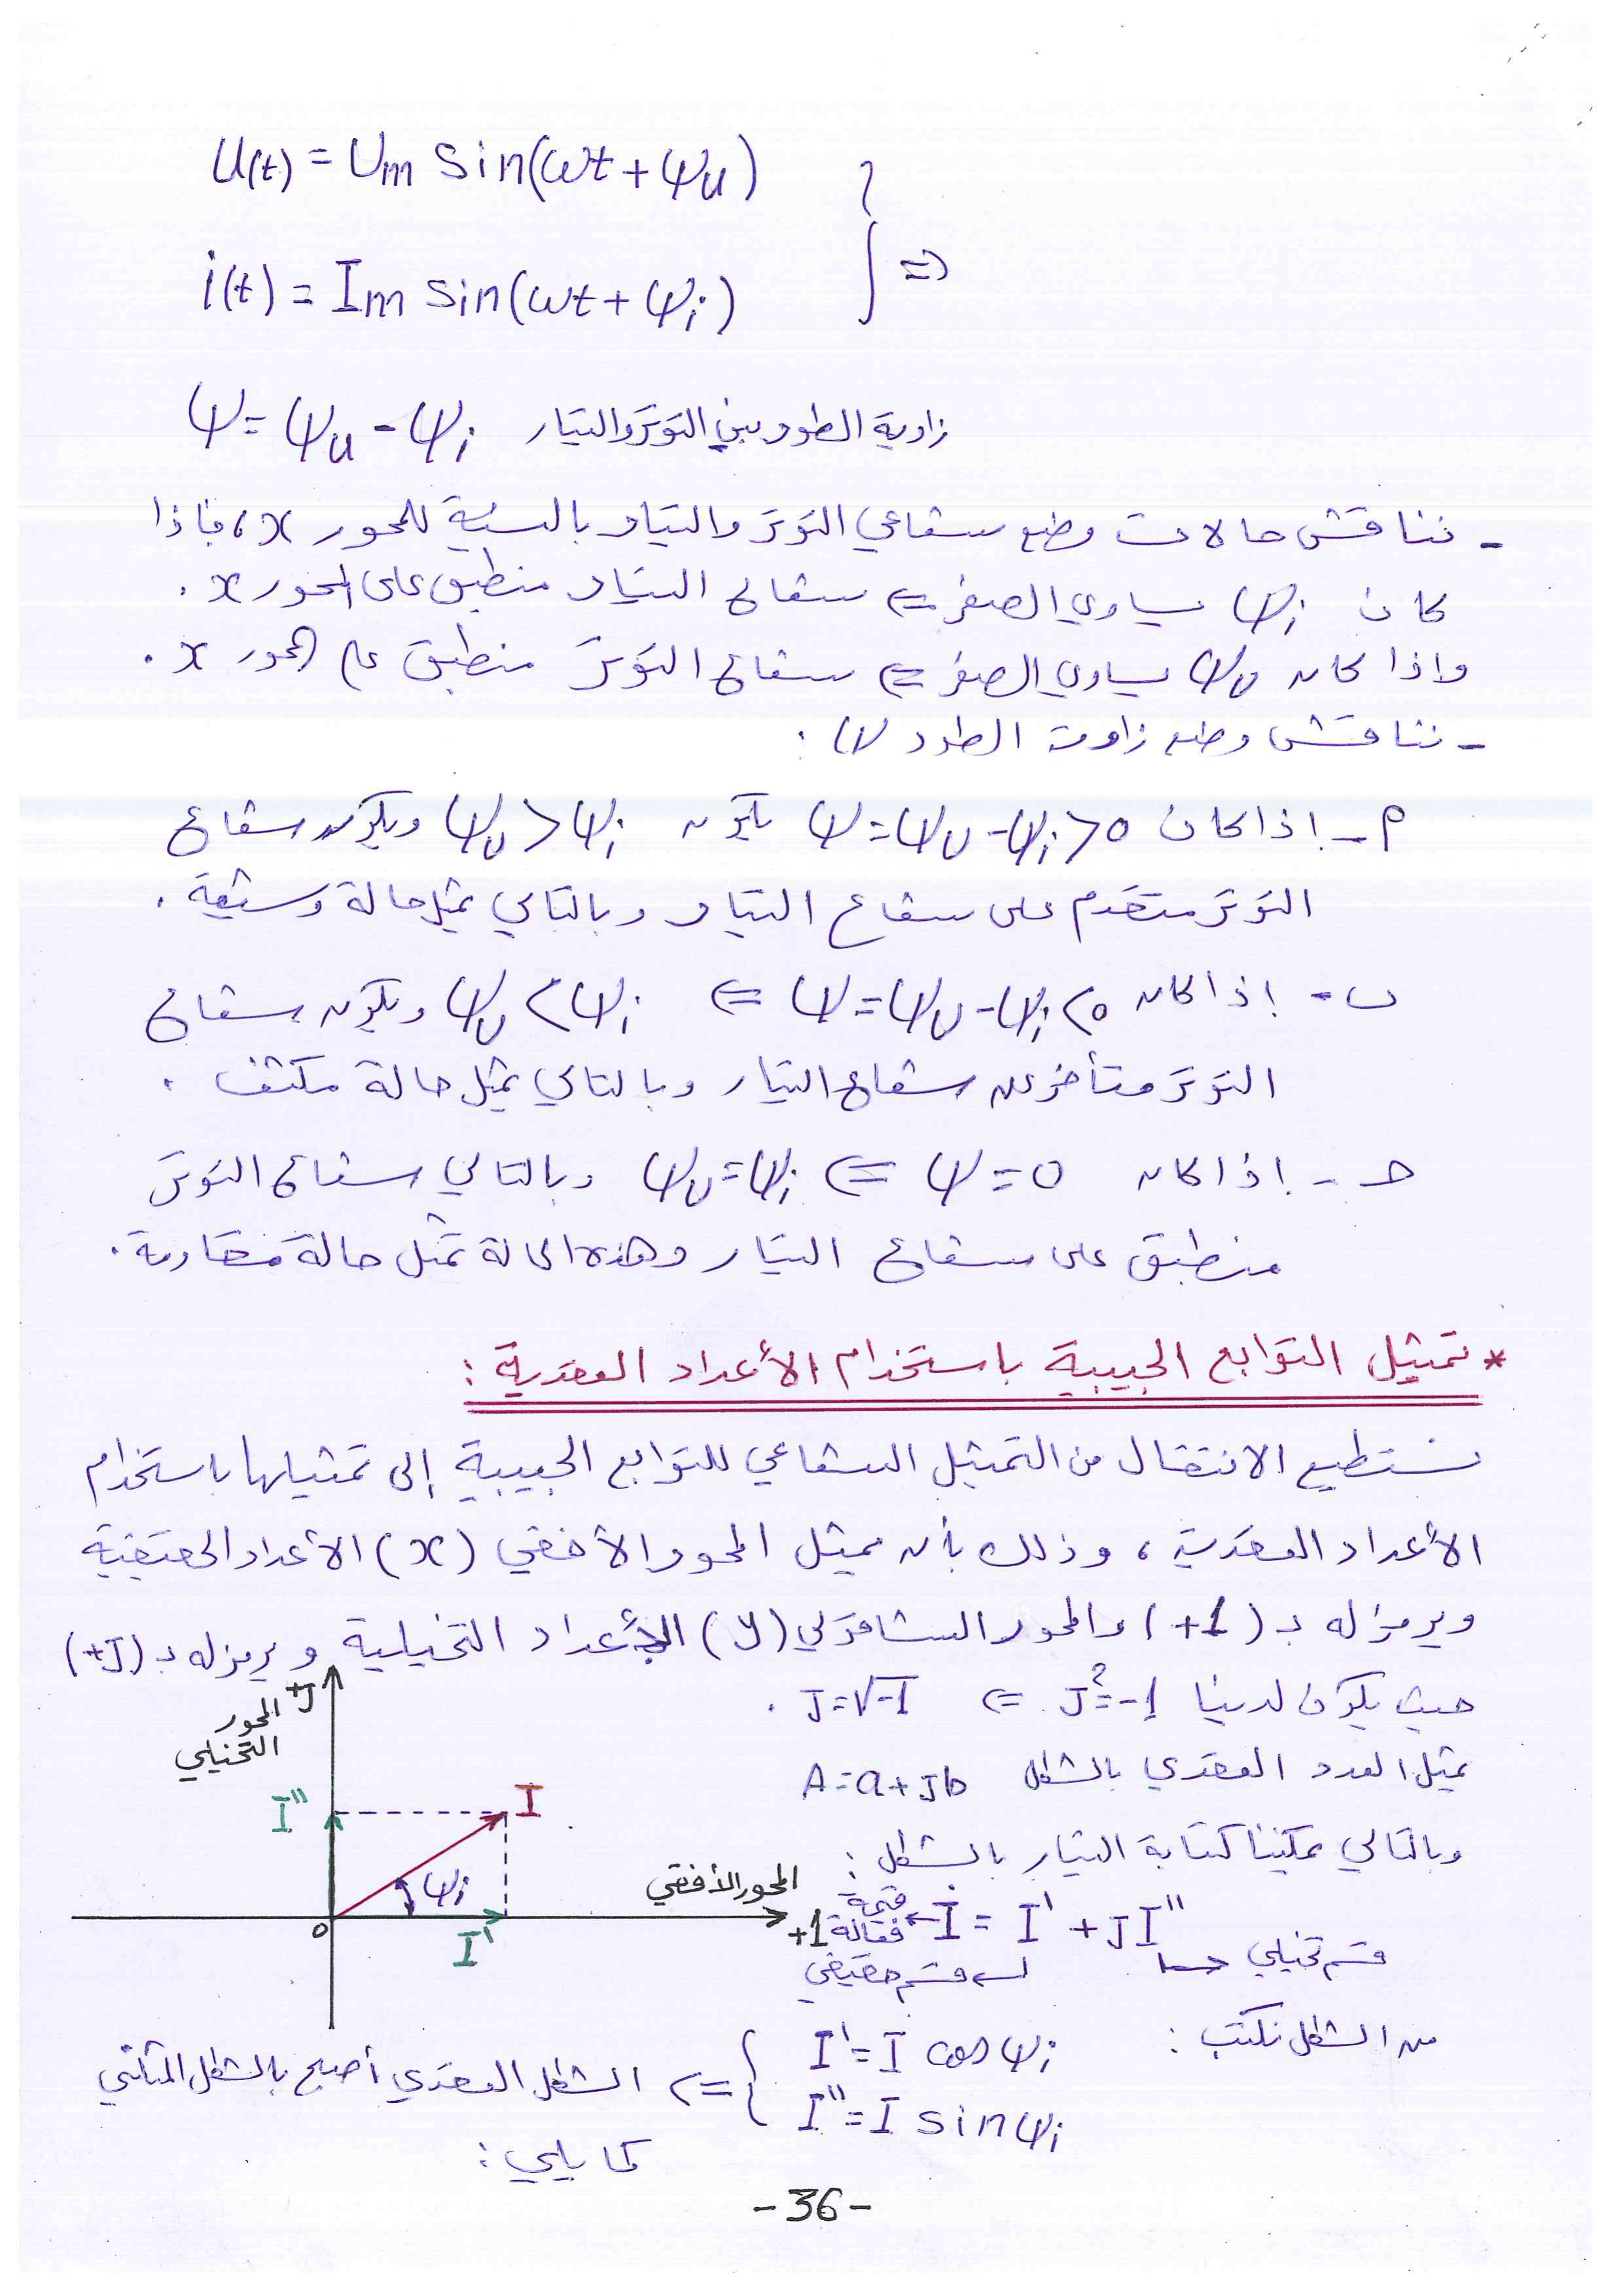 U(t) = Um Sin(ωt + ψu)
i(t) = Im Sin(ωt + ψi)
} ⇒
زاوية الطور بين التوتر والتيار ψ = ψu - ψi
- نناقش حالات وضع شعاعي التوتر والتيار بالنسبة للمحور x، فإذا
كان ψi يساوي الصفر ⇐ شعاع التيار منطبق على المحور x .
واذا كان ψu يساوي الصفر ⇐ شعاع التوتر منطبق على المحور x .
- نناقش وضع زاوية الطور ψ :
أ - إذا كان ψ = ψu - ψi > 0 يكون ψu > ψi ويكون شعاع
التوتر متقدم على شعاع التيار وبالتالي يمثل حالة وشيعة .
ب - إذا كان ψ = ψu - ψi < 0 ⇐ ψu < ψi ويكون شعاع
التوتر متأخر عن شعاع التيار وبالتالي يمثل حالة مكثف .
حـ - إذا كان ψ = 0 ⇐ ψu = ψi وبالتالي شعاع التوتر
منطبق على شعاع التيار وهذه الحالة تمثل حالة مقاومة .
* تمثيل التوابع الجيبية باستخدام الأعداد العقدية :
نستطيع الانتقال من التمثيل الشعاعي للتوابع الجيبية إلى تمثيلها باستخدام
الأعداد العقدية ، وذلك بأن يمثل المحور الأفقي (x) الأعداد الحقيقية
ويرمز له بـ (+1) والمحور الشاقولي (y) الأعداد التخيلية ويرمز له بـ (+J)
حيث يكون لدينا J² = -1 ⇐ J = √-1 .
يمثل العدد العقدي بالشكل A = a + Jb
وبالتالي يمكننا كتابة التيار بالشكل :
قيمة فعالة ← İ = I' + J I''
قسم تخيلي
قسم حقيقي
+J
المحور
التخيلي
I''
I
ψi
المحور الأفقي
0
I'
+1
من الشكل نكتب :
I' = I cos ψi
I'' = I sin ψi
} ⇒ الشكل العقدي أصبح بالشكل المثلثي
كما يلي :
-36-